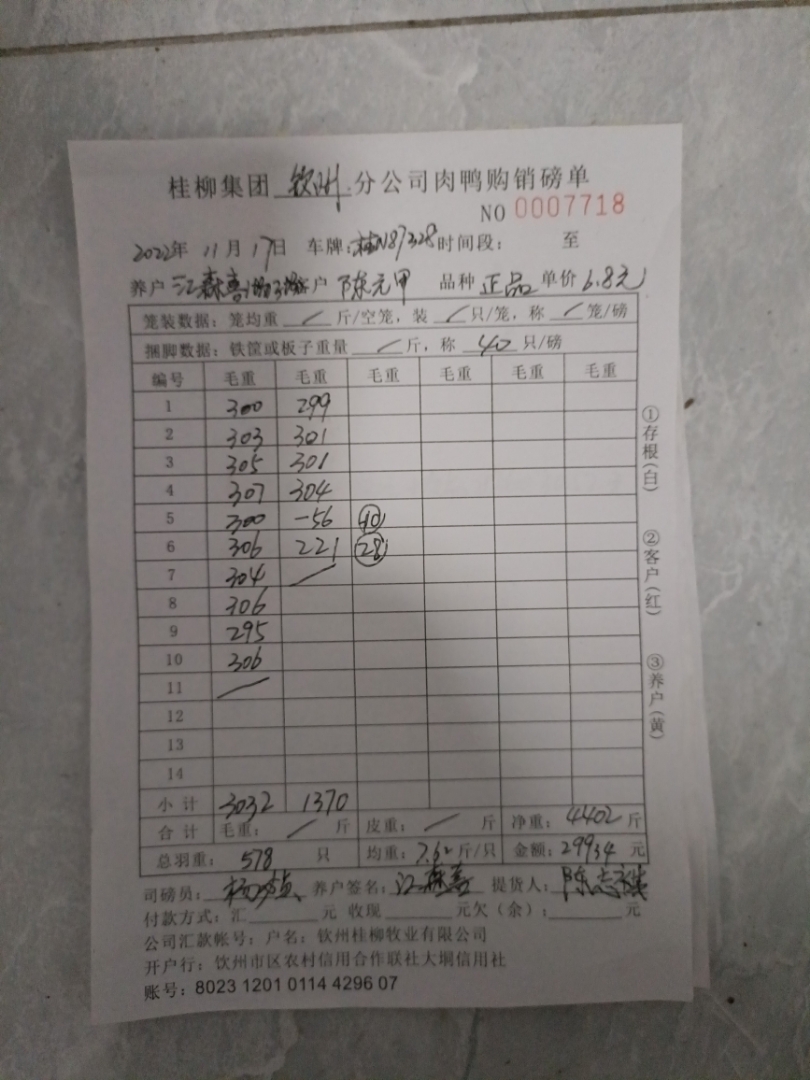 桂柳集团 钦州 分公司肉鸭购销磅单
NO 0007718
2022年 11月17日 车牌:桂N87328 时间段: 至
养户 江森喜 客户 陈元甲 品种 正品 单价 6.8元
笼装数据: 笼均重 / 斤/空笼, 装 / 只/笼, 称 / 笼/磅
捆脚数据: 铁筐或板子重量 / 斤, 称 40 只/磅
编号 毛重 毛重 毛重 毛重 毛重 毛重
1 300 299
2 303 301
3 305 301
4 307 304
5 300 -56 10
6 306 221 28
7 304 /
8 306
9 295
10 306
11 /
12
13
14
小计 3032 1370
合计 毛重: / 斤 皮重: / 斤 净重: 4402 斤
总羽重: 578 只 均重: 7.62 斤/只 金额: 29934 元
司磅员: 养户签名: 江森喜 提货人: 陈志
付款方式: 汇 元 收现 元欠(余): 元
公司汇款帐号: 户名: 钦州桂柳牧业有限公司
开户行: 钦州市区农村信用合作联社大垌信用社
账号: 8023 1201 0114 4296 07
①存根(白)
②客户(红)
③养户(黄)